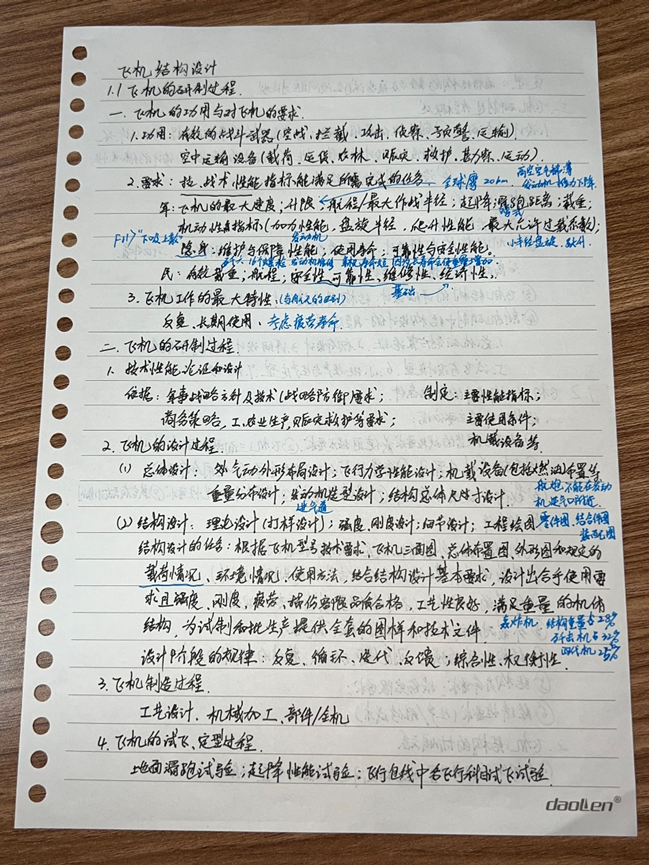 飞机结构设计
1.1 飞机的研制过程.
一. 飞机的功用与对飞机的要求.
1.功用: 有效的战斗武器(空战、拦截、攻击、侦察、预警、运输)
空中运输设备(载荷、运货、农林、赈灾、救护、勘察、运动).
2.要求: 技、战术性能指标,能满足所需完成的任务 全球鹰20km. 高空空气稀薄
发动机推力下降
军:飞机的最大速度;升限;航程/最大作战半径;起降滑跑距离;载重;
机动性指标(加力性能、盘旋半径、爬升性能、最大允许过载系数);
隐身;维护与保障性能、使用寿命、可靠性与安全性能.
发动机
小半径盘旋
民:有效载重;航程;安全性、可靠性、维修性、经济性.
基础
3.飞机工作的最大特性.
反复、长期使用、考虑疲劳寿命
二. 飞机的研制过程.
1. 技术性能论证和设计
依据: 军事战略方针及技术(战略防御)要求; 制定:主要性能指标;
商务策略,工、农业生产,赈灾救护等要求; 主要使用条件;
2. 飞机的设计过程. 机载设备等
(1) 总体设计: 外气动外形布局设计;飞行力学性能设计;机载设备(包括燃油)布置等
重量分布设计;发动机选型设计;结构总体尺寸设计. 机炮不能在发动
进气道 机进气口附近.
(2) 结构设计: 理论设计(打样设计);强度、刚度设计;细节设计;工程绘图 零件图、结合件图
装配图
结构设计的任务:根据飞机型号技术要求、飞机三面图、总体布置图、外形图和规定的
载荷情况、环境情况、使用方法,结合结构设计基本要求,设计出合乎使用要
求且强度、刚度、疲劳、损伤容限品质合格,工艺性良好,满足重量的机体
结构,为试制和批生产提供全套的图样和技术文件. 轰炸机 结构重量占28%
歼击机占32%
四代机25%
设计阶段的规律: 反复、循环、迭代、反馈;综合性、权衡性.
3. 飞机制造过程.
工艺设计、机械加工、部件/全机
4. 飞机的试飞、定型过程.
地面滑跑试验;起降性能试验;飞行包线中各飞行科目试飞试验.
daoLen®